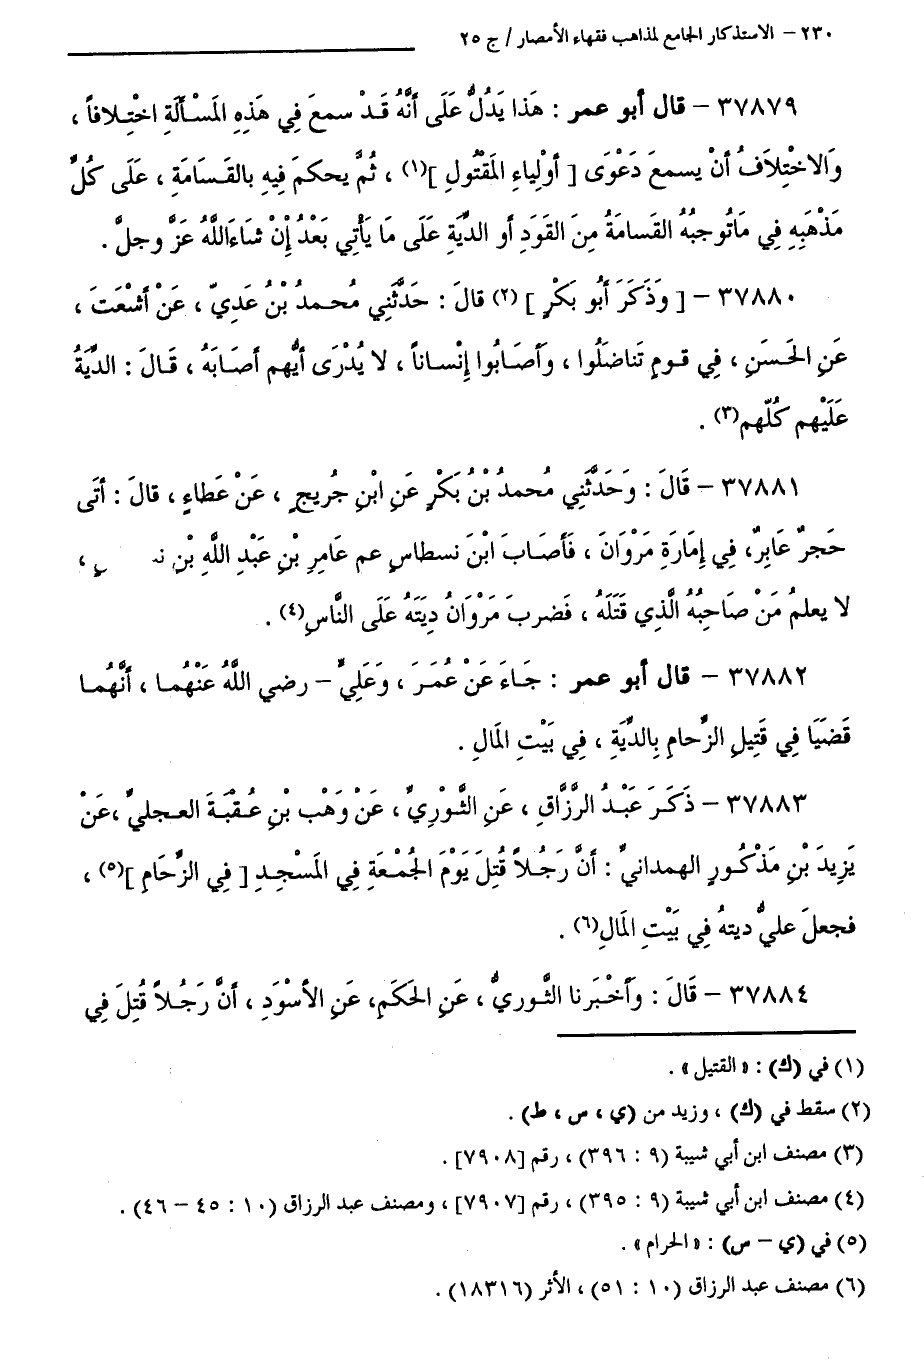 ٢٣٠ – الاستذكار الجامع لمذاهب فقهاء الأمصار / ج ٢٥
٣٧٨٧٩ – قال أبو عمر : هَذا يَدُلُّ عَلَى أَنَّهُ قَدْ سمعَ فِي هَذِهِ المَسْأَلَةِ اخْتِلافاً ،
وَالاخْتِلاَفُ أنْ يسمعَ دَعْوَى [ أولِياءِ المَقْتُولِ ](١) ، ثُمَّ يحكمَ فِيهِ بالقَسَامَةِ ، عَلَى كُلِّ
مَذْهَبِهِ فِي مَاتُوجبُهُ القَسامَةُ مِنَ القَودِ أو الدِّيَةِ عَلَى مَا يَأْتِي بَعْدُ إِنْ شاءَاللَّهُ عَزَّ وجلَّ .
٣٧٨٨٠ – [ وَذَكَرَ أبُو بَكْرٍ ](٢) قالَ : حَدَّثَنِي مُحمدُ بْنُ عَدِيّ ، عَنْ أشْعَثَ ،
عَنِ الحَسَنِ ، فِي قومٍ تَناضَلُوا ، وأصَابُوا إنْساناً ، لا يُدْرَى أيُّهم أصَابَهُ ، قَالَ : الدِّيَةُ
عَلَيْهم كُلّهم(٣) .
٣٧٨٨١ – قَالَ : وَحَدَّثَنِي مُحمدُ بْنُ بَكْرٍ عَنِ ابْنِ جُريجٍ ، عَنْ عَطاءٍ ، قالَ : أتَى
حَجرٌ عَابِرٌ، فِي إمَارَةِ مَرْوَانَ ، فَأصَابَ ابْنَ نسطاسٍ عم عَامِرِ بْنِ عَبْدِ اللَّهِ بْنِ ،
لا يعلمُ مَنْ صَاحِبُهُ الَّذِي قَتَلَهُ ، فَضربَ مَرْوَانُ دِيَتَهُ عَلَى النَّاسِ(٤) .
٣٧٨٨٢ – قال أبو عمر : جَاءَ عَنْ عُمَرَ ، وَعَلِيٍّ – رضي اللَّهُ عَنْهُما ، أنَّهُما
قَضَيَا فِي قَتِيلِ الزِّحامِ بِالدِّيَةِ ، فِي بَيْتِ المَالِ .
٣٧٨٨٣ – ذَكَرَ عَبْدُ الرَّزَّاقِ ، عَنِ الثَّوْرِيِّ ، عَنْ وَهْب بْنِ عُقبَةَ العجليِّ ،عَنْ
يَزِيدَ بْنِ مَذْكُورٍ الهمدانيِّ : أنَّ رَجُلاً قُتِلَ يَوْمَ الجُمْعَةِ فِي المَسْجِدِ [ فِي الزِّحَامِ ](٥) ،
فجعلَ عليٌّ ديتهُ فِي بَيْتِ المَالِ(٦) .
٣٧٨٨٤ – قَالَ : وَأخْبَرنا الثَّوريُّ ، عَنِ الحَكَمِ، عَنِ الأسْوَدِ ، أنَّ رَجُلاً قُتِلَ فِي
(١) في (ك) : « القتيل » .
(٢) سقط في (ك) ، وزيد من (ي ، س ، ط) .
(٣) مصنف ابن أبي شيبة (٩ : ٣٩٦) ، رقم [٧٩٠٨] .
(٤) مصنف ابن أبي شيبة (٩ : ٣٩٥) ، رقم [٧٩٠٧] ، ومصنف عبد الرزاق (١٠ : ٤٥ – ٤٦) .
(٥) في (ي – س) : « الحرام » .
(٦) مصنف عبد الرزاق (١٠ : ٥١) ، الأثر (١٨٣١٦) .